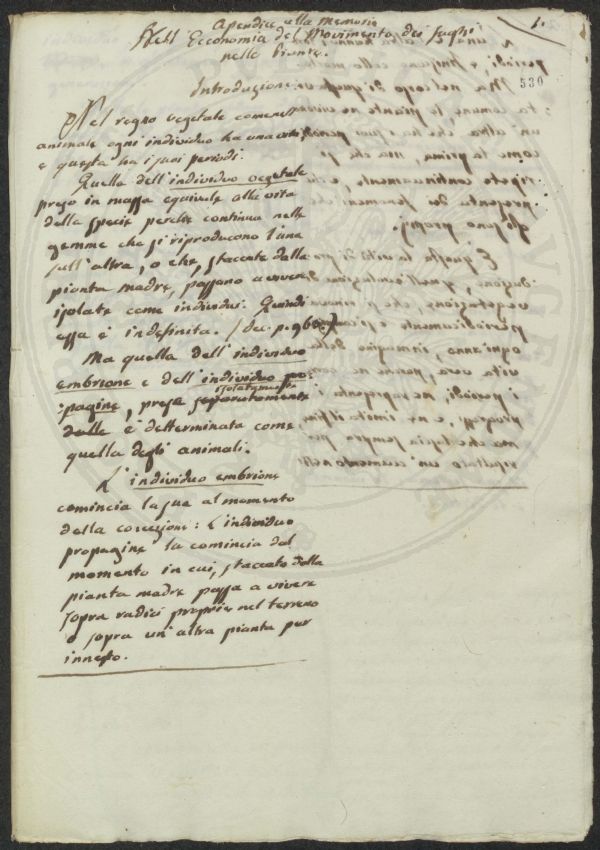 Apendice alla Memoria
Nell' Economia del Movimento dei Sughi
nelle Piante.
1.
530
Introduzione
Nel regno vegetale come nell'
animale ogni individuo ha una vita,
e questa ha i suoi periodi.
Quella dell'individuo vegetale
preso in massa equivale alla vita
della specie perchè continua nelle
gemme che si riproducono l'una
sull'altra, o che, staccate dalla
pianta madre, passano a vivere
isolate come individui. Quindi
essa è indefinita.
Ma quella dell'individuo
embrione e dell'individuo pro-
:pagine, presa separatamente
isolatamente
è determinata come
quella degli animali.
L'individuo embrione
comincia la sua al momento
della concezione: L'individuo
propagine la comincia dal
momento in cui, staccato dalla
pianta madre passa a vivere
sopra radici proprie nel terreno
o sopra un'altra pianta per
innesto.